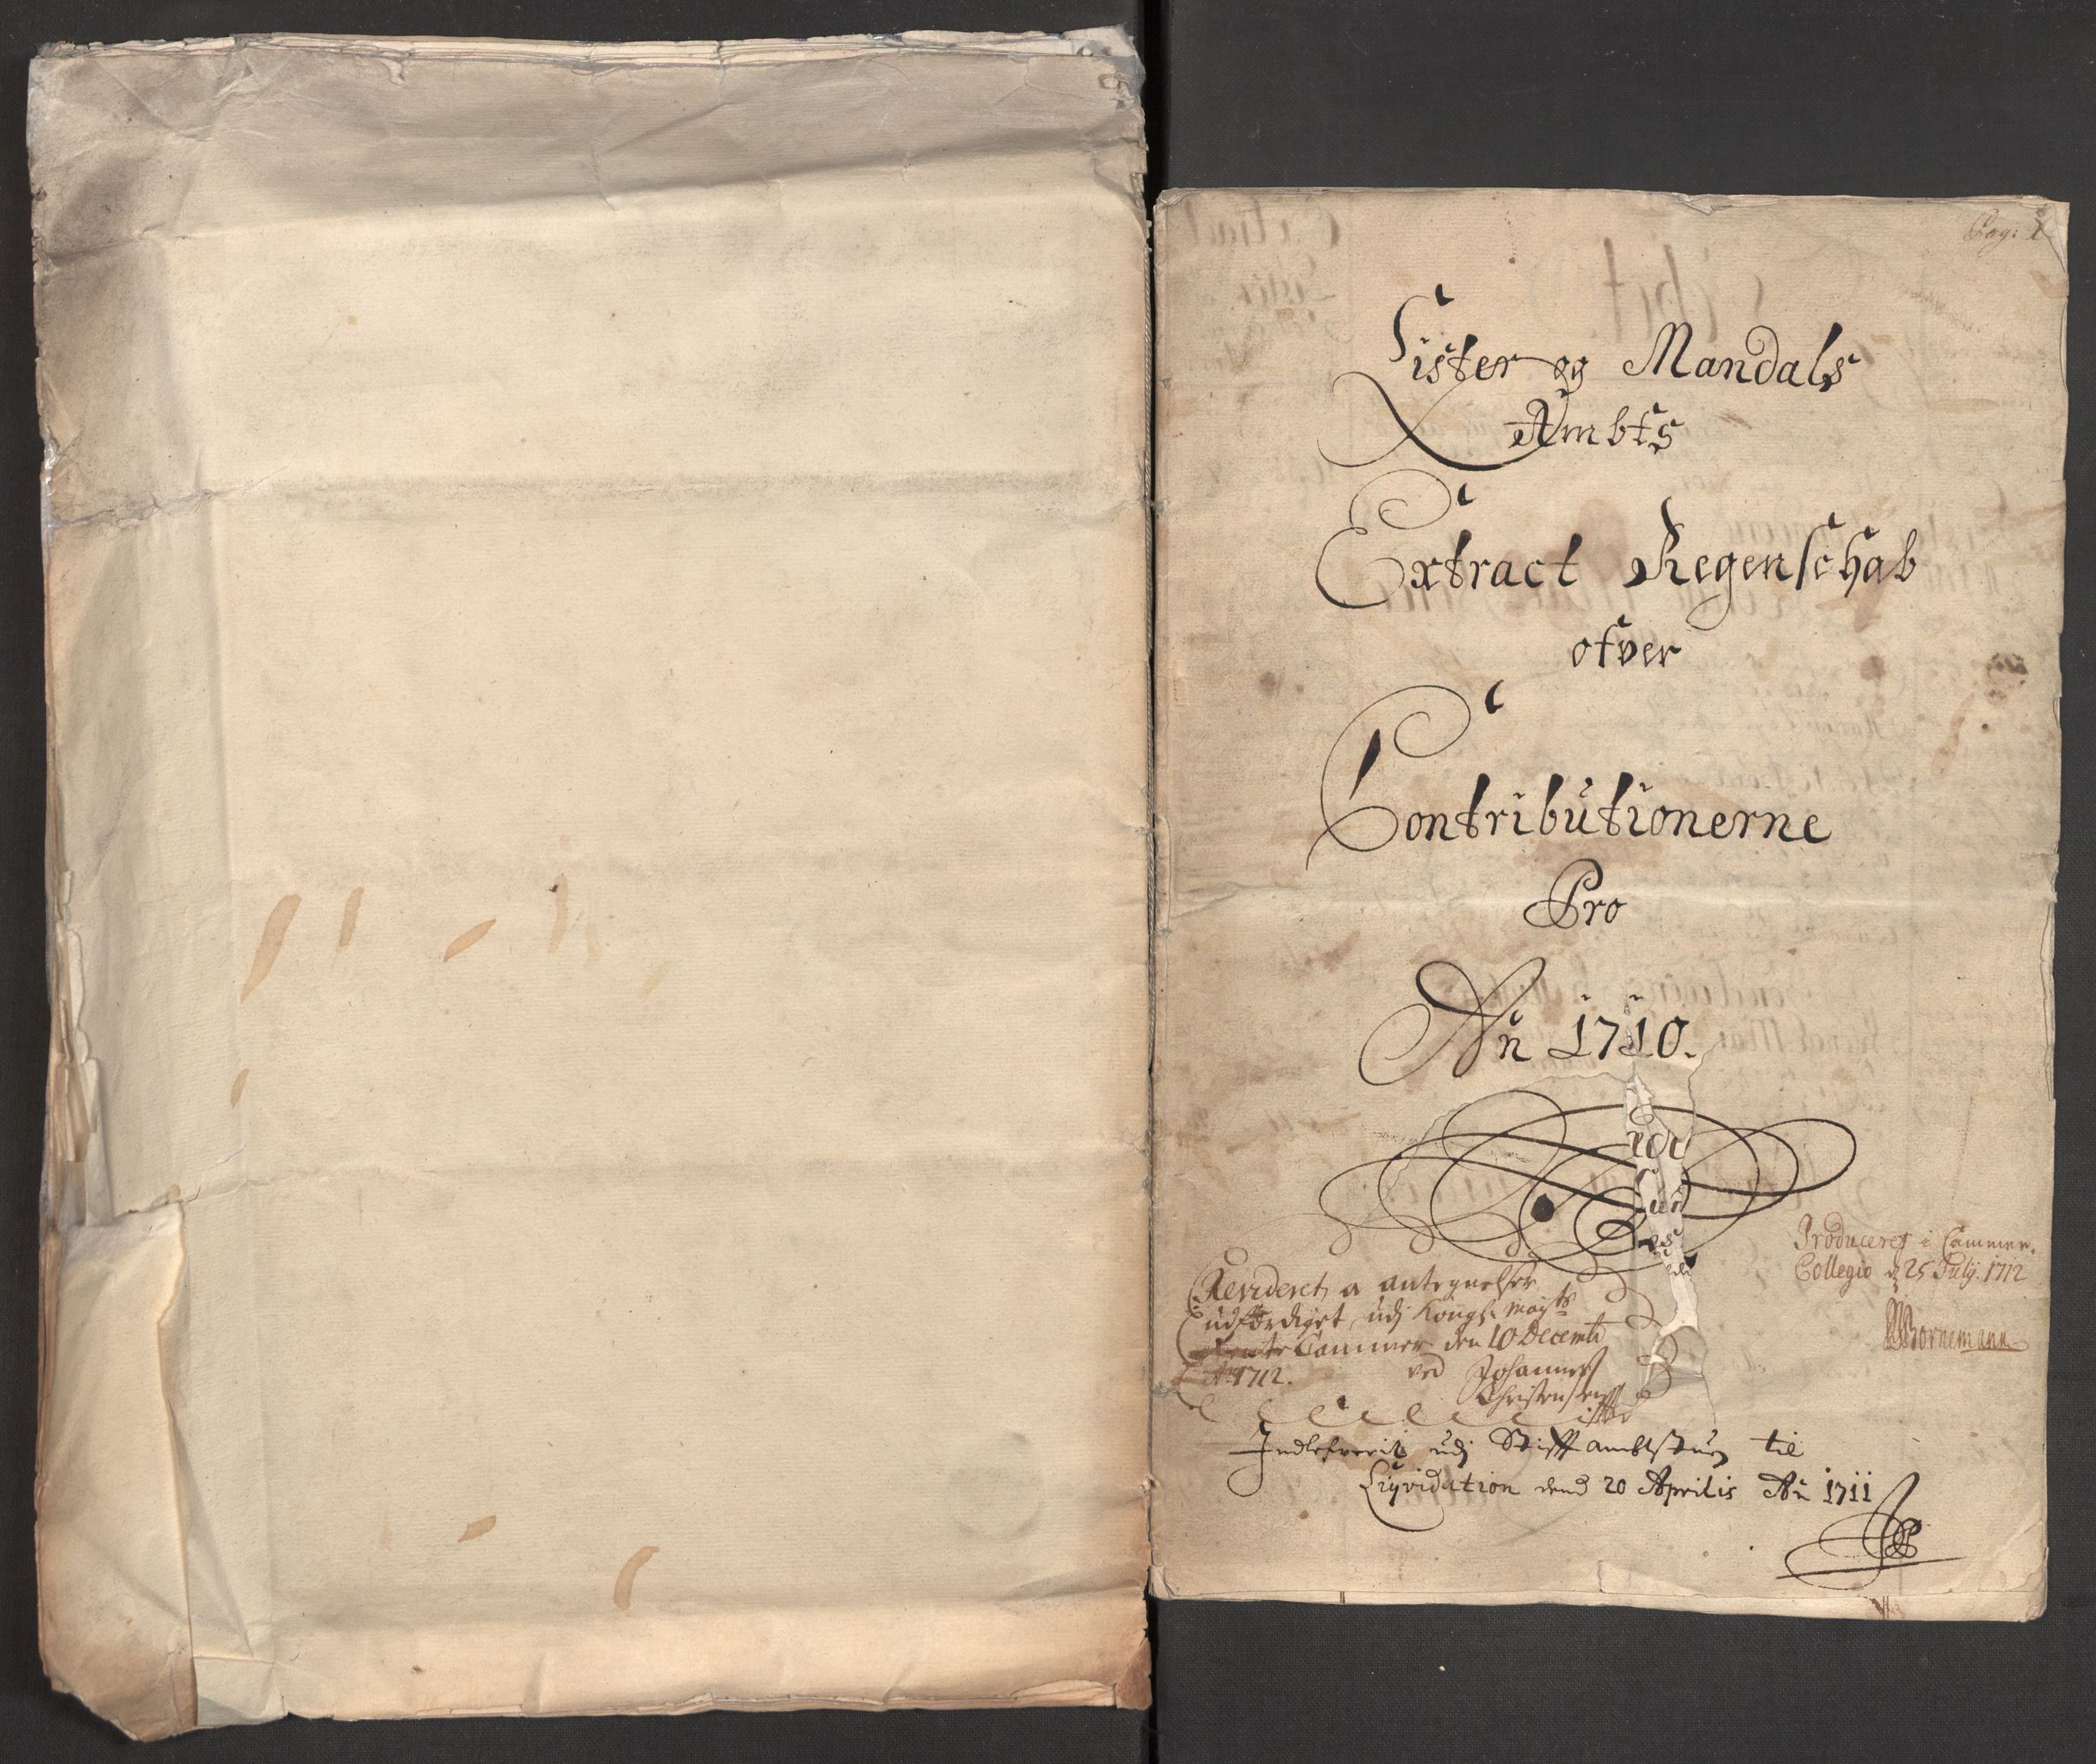 Pag: 1
Lister og Mandals
Ambts
Extract Regenschab
ofver
Contributionerne
Pro
Añ 1710.
Produceret i Cammer.
Collegio d 25 Julÿ. 1712
Bornemann
Revideret, a antegnelser
udfærdiget, udj Kongl. Mayts
Rente Cammer den 10 Decembr
Ao 1712. ved Johannes
Christensen
Indlefverit udj Stifft ambtstuen til
Liqvidation dend 20 Aprilis Añ 1711